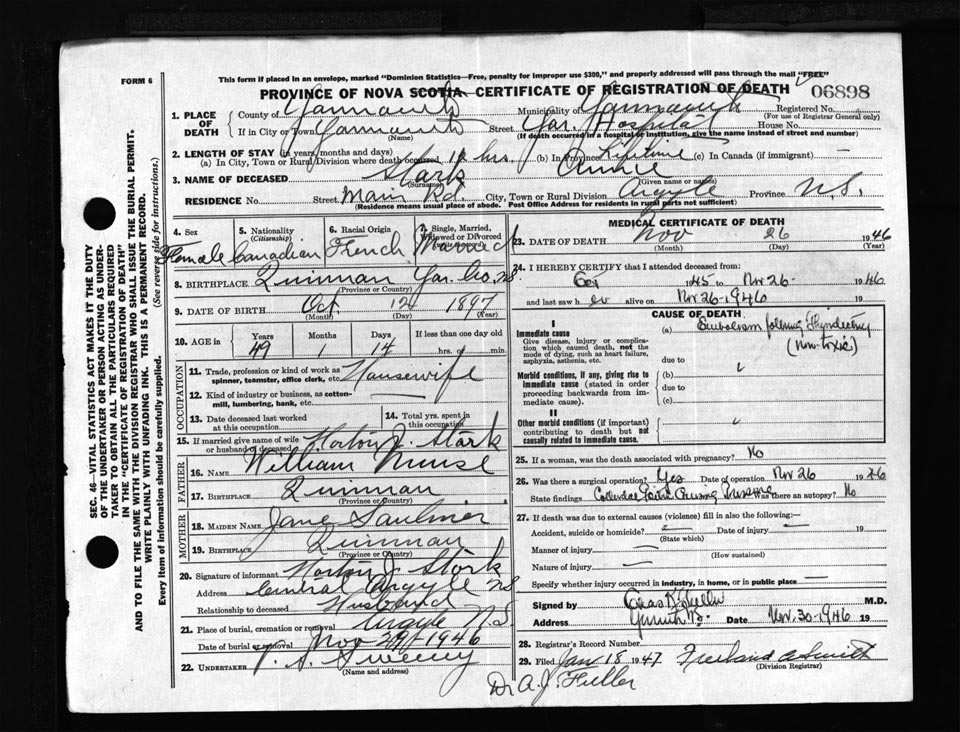 FORM 6
This form if placed in an envelope, marked "Dominion Statistics—Free, penalty for improper use $300," and properly addressed will pass through the mail "FREE"
PROVINCE OF NOVA SCOTIA—CERTIFICATE OF REGISTRATION OF DEATH
06898
1. PLACE OF DEATH
County of Yarmouth Municipality of Yarmouth Registered No.
(For use of Registrar General only)
If in City or Town Yarmouth Street Yar. Hospital House No.
(If death occurred in a hospital or institution, give the name instead of street and number)
2. LENGTH OF STAY (in years, months and days)
(a) In City, Town or Rural Division where death occurred 18 hrs. (b) In Province Lifetime (c) In Canada (if immigrant) —
3. NAME OF DECEASED Stark Annie
(Surname) (Given name or names)
RESIDENCE No. Street Main Rd. City, Town or Rural Division Argyle Province N.S.
(Residence means usual place of abode. Post Office Address for residents in rural parts not sufficient)
4. Sex Female
5. Nationality (Citizenship) Canadian
6. Racial Origin French
7. Single, Married, Widowed or Divorced Married
8. BIRTHPLACE Quinman Yar. Co. N.S.
(Province or Country)
9. DATE OF BIRTH Oct. 12 1897
(Month) (Day) (Year)
10. AGE in Years Months Days If less than one day old
49 1 14 hrs. or min.
OCCUPATION
11. Trade, profession or kind of work as spinner, teamster, office clerk, etc. Housewife
12. Kind of industry or business, as cotton-mill, lumbering, bank, etc. —
13. Date deceased last worked at this occupation
14. Total yrs. spent in this occupation
15. If married give name of wife or husband of deceased Norton J. Stark
FATHER
16. NAME William Muise
17. BIRTHPLACE Quinman
(Province or Country)
MOTHER
18. MAIDEN NAME Jane Saulnier
19. BIRTHPLACE Quinman
(Province or Country)
20. Signature of informant Norton J. Stark
Address Central Argyle N.S.
Relationship to deceased Husband
21. Place of burial, cremation or removal Argyle N.S.
Date of burial or removal Nov 29 1946
22. UNDERTAKER V. S. Sweeny
(Name and address)
MEDICAL CERTIFICATE OF DEATH
23. DATE OF DEATH Nov 26 1946
(Month) (Day) (Year)
24. I HEREBY CERTIFY that I attended deceased from
1945 to Nov 26 1946
and last saw her alive on Nov 26 1946 19
CAUSE OF DEATH
I
Immediate cause
Give disease, injury or complication which caused death, not the mode of dying, such as heart failure, asphyxia, asthenia, etc.
(a) Embolism following Thyroidectomy
(non toxic)
due to
Morbid conditions, if any, giving rise to immediate cause (stated in order proceeding backwards from immediate cause).
(b)
due to
(c)
II
Other morbid conditions (if important) contributing to death but not causally related to immediate cause.
25. If a woman, was the death associated with pregnancy? No
26. Was there a surgical operation? Yes Date of operation Nov 26 1946
State findings Colloidal Goitre Causing Pressure Was there an autopsy? No
27. If death was due to external causes (violence) fill in also the following:
Accident, suicide or homicide? — Date of injury — 19
(State which)
Manner of injury —
(How sustained)
Nature of injury —
Specify whether injury occurred in industry, in home, or in public place —
Signed by M.D.
Address Date Nov. 30 1946 19
28. Registrar's Record Number
29. Filed Jan 18 1947 Freeland A Smith
(Division Registrar)
Dr A. J. Fuller
SEC. 46—VITAL STATISTICS ACT MAKES IT THE DUTY
OF THE UNDERTAKER OR PERSON ACTING AS UNDERTAKER TO OBTAIN ALL THE PARTICULARS REQUIRED
IN THE "CERTIFICATE OF REGISTRATION OF DEATH"
AND TO FILE THE SAME WITH THE DIVISION REGISTRAR WHO SHALL ISSUE THE BURIAL PERMIT.
WRITE PLAINLY WITH UNFADING INK. THIS IS A PERMANENT RECORD.
Every item of information should be carefully supplied. (See reverse side for instructions.)